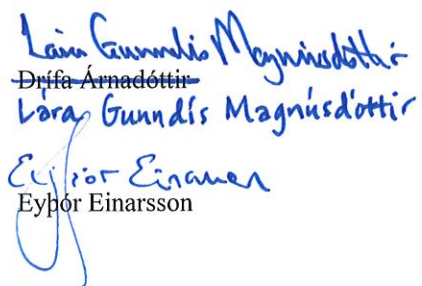 Lára Gunndís Magnúsdóttir
Drífa Árnadóttir
Lára Gunndís Magnúsdóttir
Eyþór Einarsson
Eyþór Einarsson